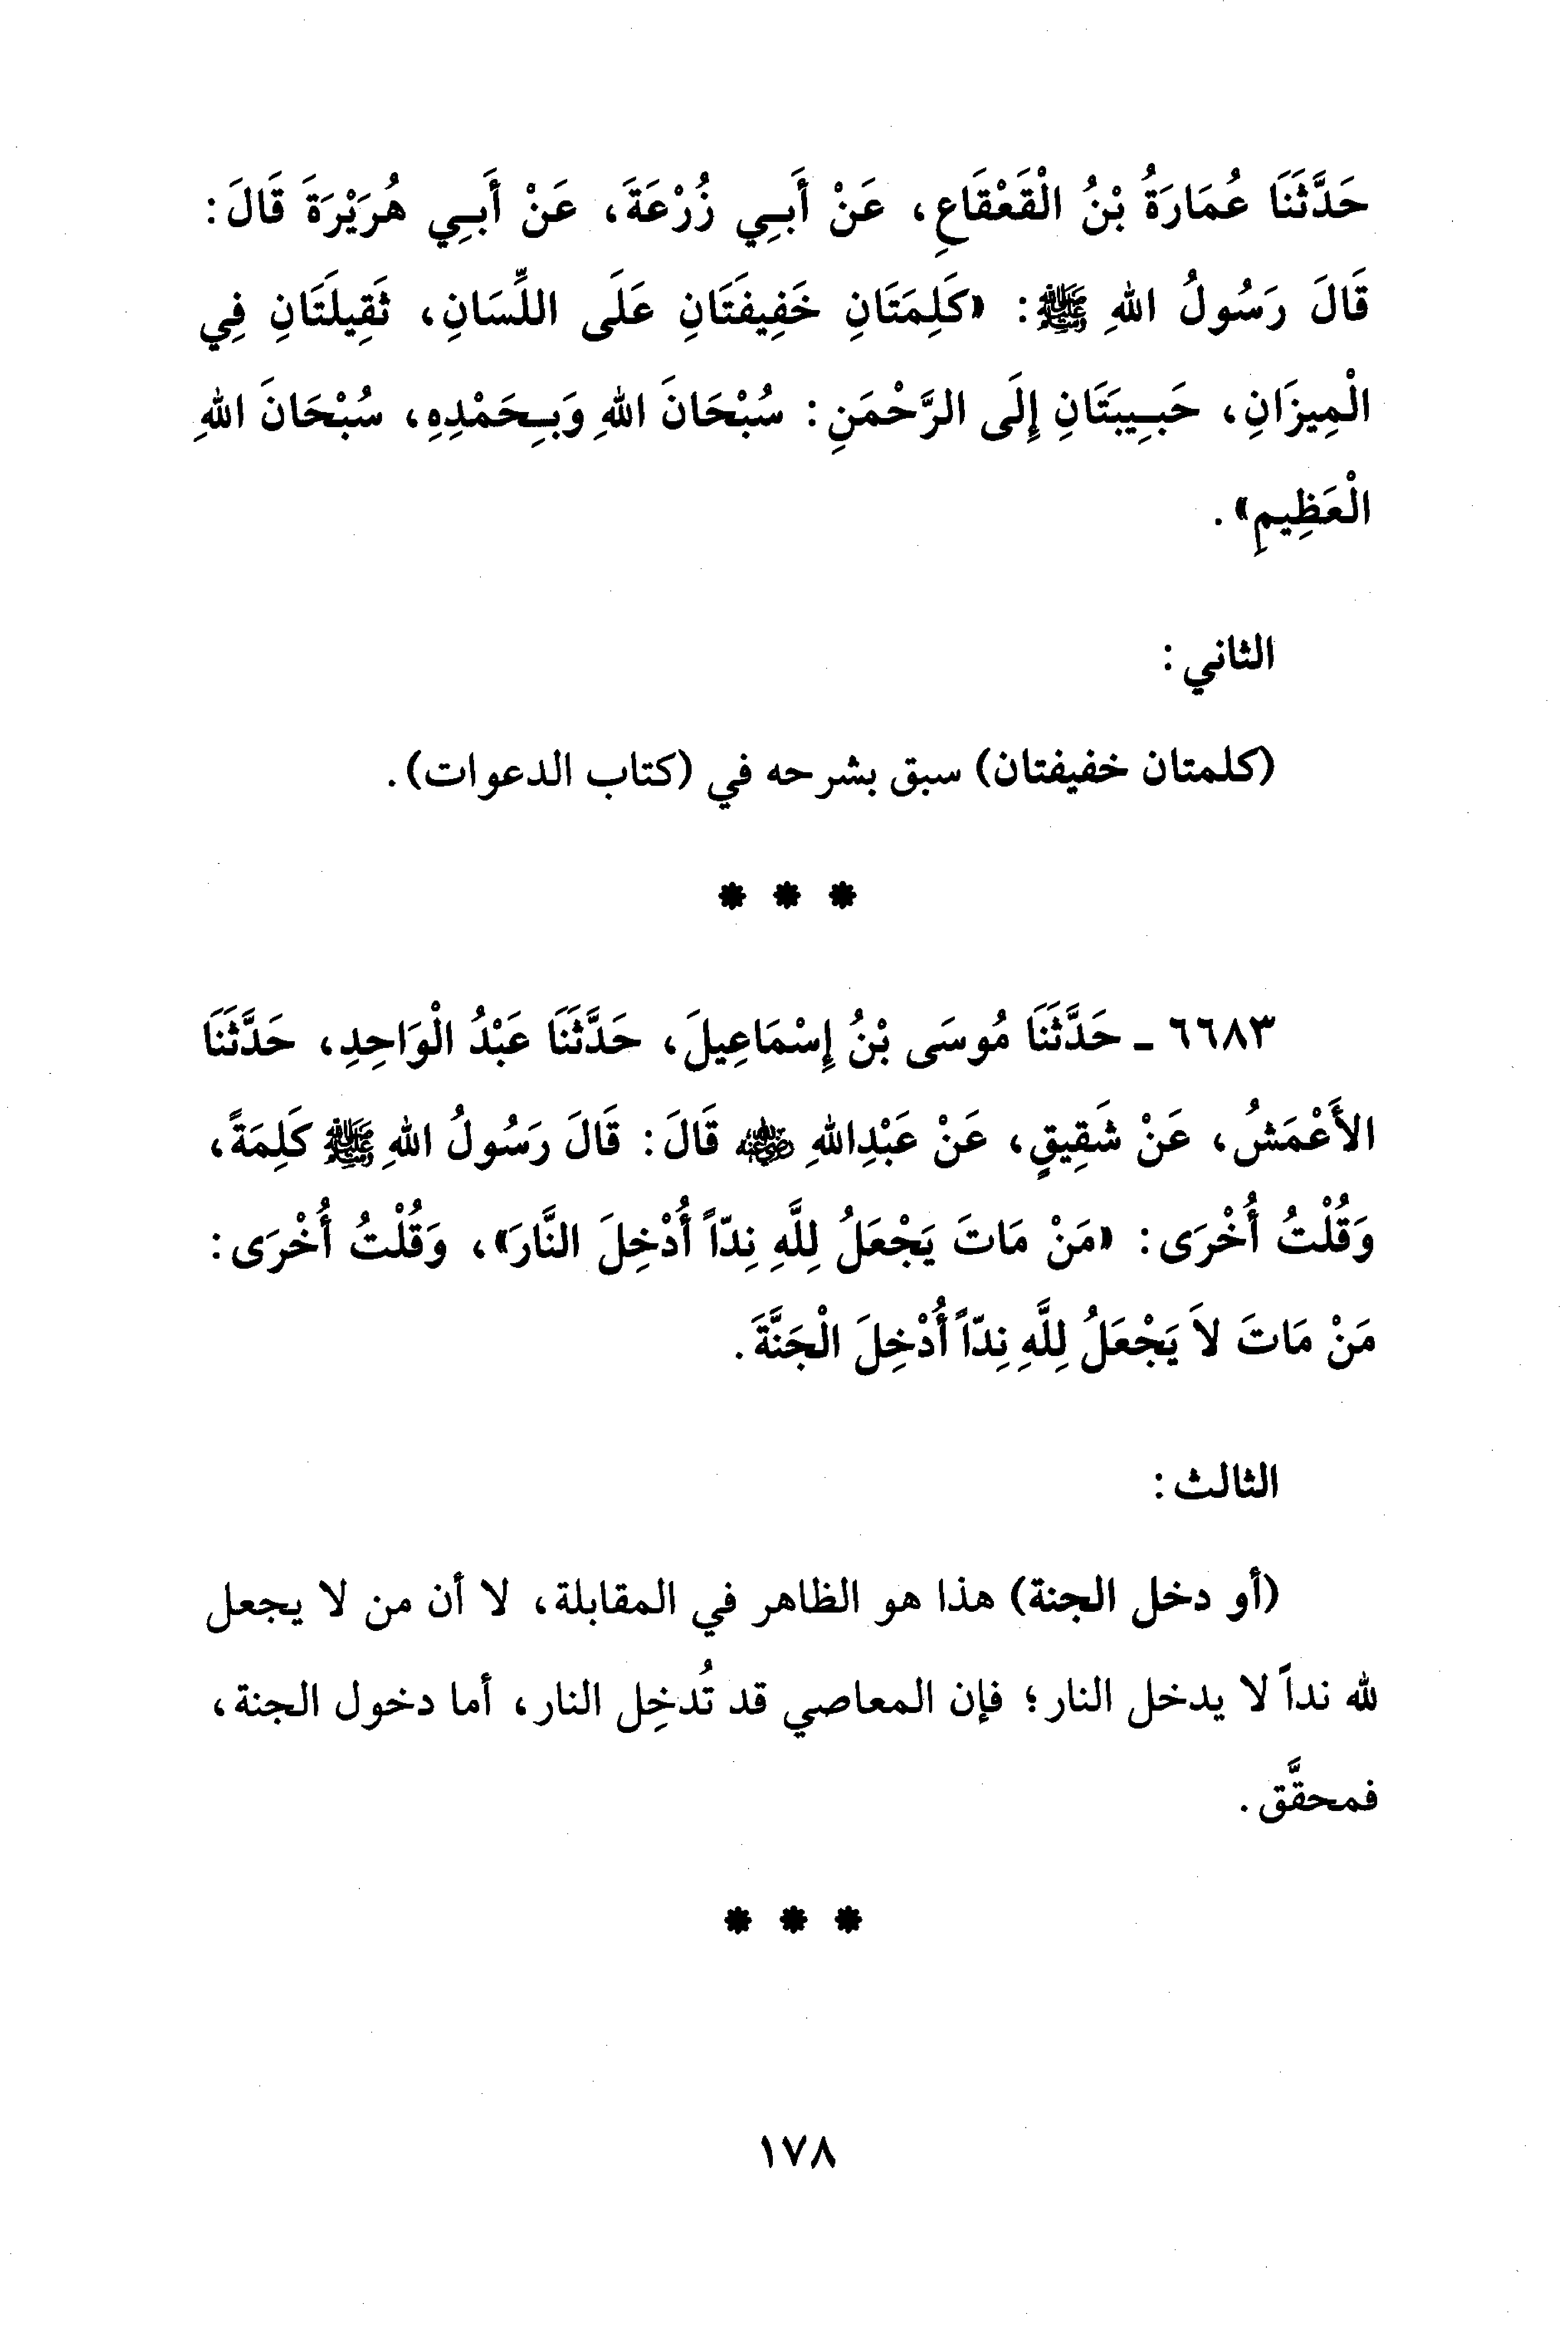 حَدَّثَنَا عُمَارَةُ بْنُ الْقَعْقَاعِ، عَنْ أَبِي زُرْعَةَ، عَنْ أَبِي هُرَيْرَةَ قَالَ:
قَالَ رَسُولُ اللهِ ﷺ: «كَلِمَتَانِ خَفِيفَتَانِ عَلَى اللِّسَانِ، ثَقِيلَتَانِ فِي
الْمِيزَانِ، حَبِيبَتَانِ إِلَى الرَّحْمَنِ: سُبْحَانَ اللهِ وَبِحَمْدِهِ، سُبْحَانَ اللهِ
الْعَظِيمِ».
الثاني:
(كلمتان خفيفتان) سبق بشرحه في (كتاب الدعوات).
* * *
٦٦٨٣ ـ حَدَّثَنَا مُوسَى بْنُ إِسْمَاعِيلَ، حَدَّثَنَا عَبْدُ الْوَاحِدِ، حَدَّثَنَا
الأَعْمَشُ، عَنْ شَقِيقٍ، عَنْ عَبْدِاللهِ رضي الله عنه قَالَ: قَالَ رَسُولُ اللهِ ﷺ كَلِمَةً،
وَقُلْتُ أُخْرَى: «مَنْ مَاتَ يَجْعَلُ لِلَّهِ نِدّاً أُدْخِلَ النَّارَ»، وَقُلْتُ أُخْرَى:
مَنْ مَاتَ لاَ يَجْعَلُ لِلَّهِ نِدّاً أُدْخِلَ الْجَنَّةَ.
الثالث:
(أو دخل الجنة) هذا هو الظاهر في المقابلة، لا أن من لا يجعل
لله نداً لا يدخل النار؛ فإن المعاصي قد تُدخِل النار، أما دخول الجنة،
فمحقَّق.
* * *
١٧٨